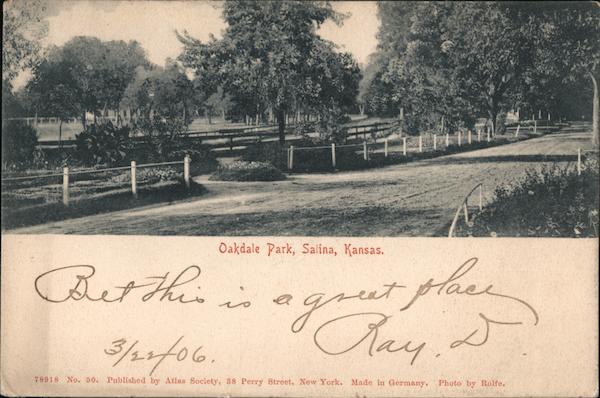 Oakdale Park, Salina, Kansas.
Bet this is a great place
Ray. D.
3/22/06.
78918 No. 50. Published by Atlas Society, 38 Perry Street, New York. Made in Germany. Photo by Rolfe.